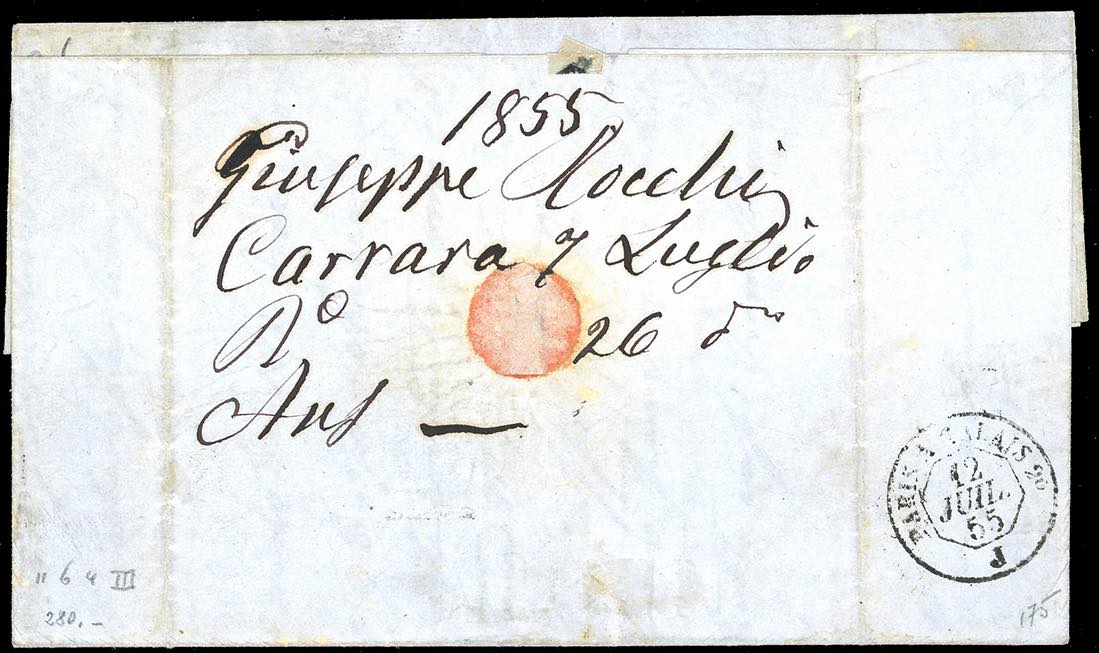 1855
Giuseppe Rocchi
Carrara 7 Luglio
R.º 26 do
Ans —
PARIS A CALAIS 2º
12
JUIL.
55
P
11 6 4 III
280.-
175